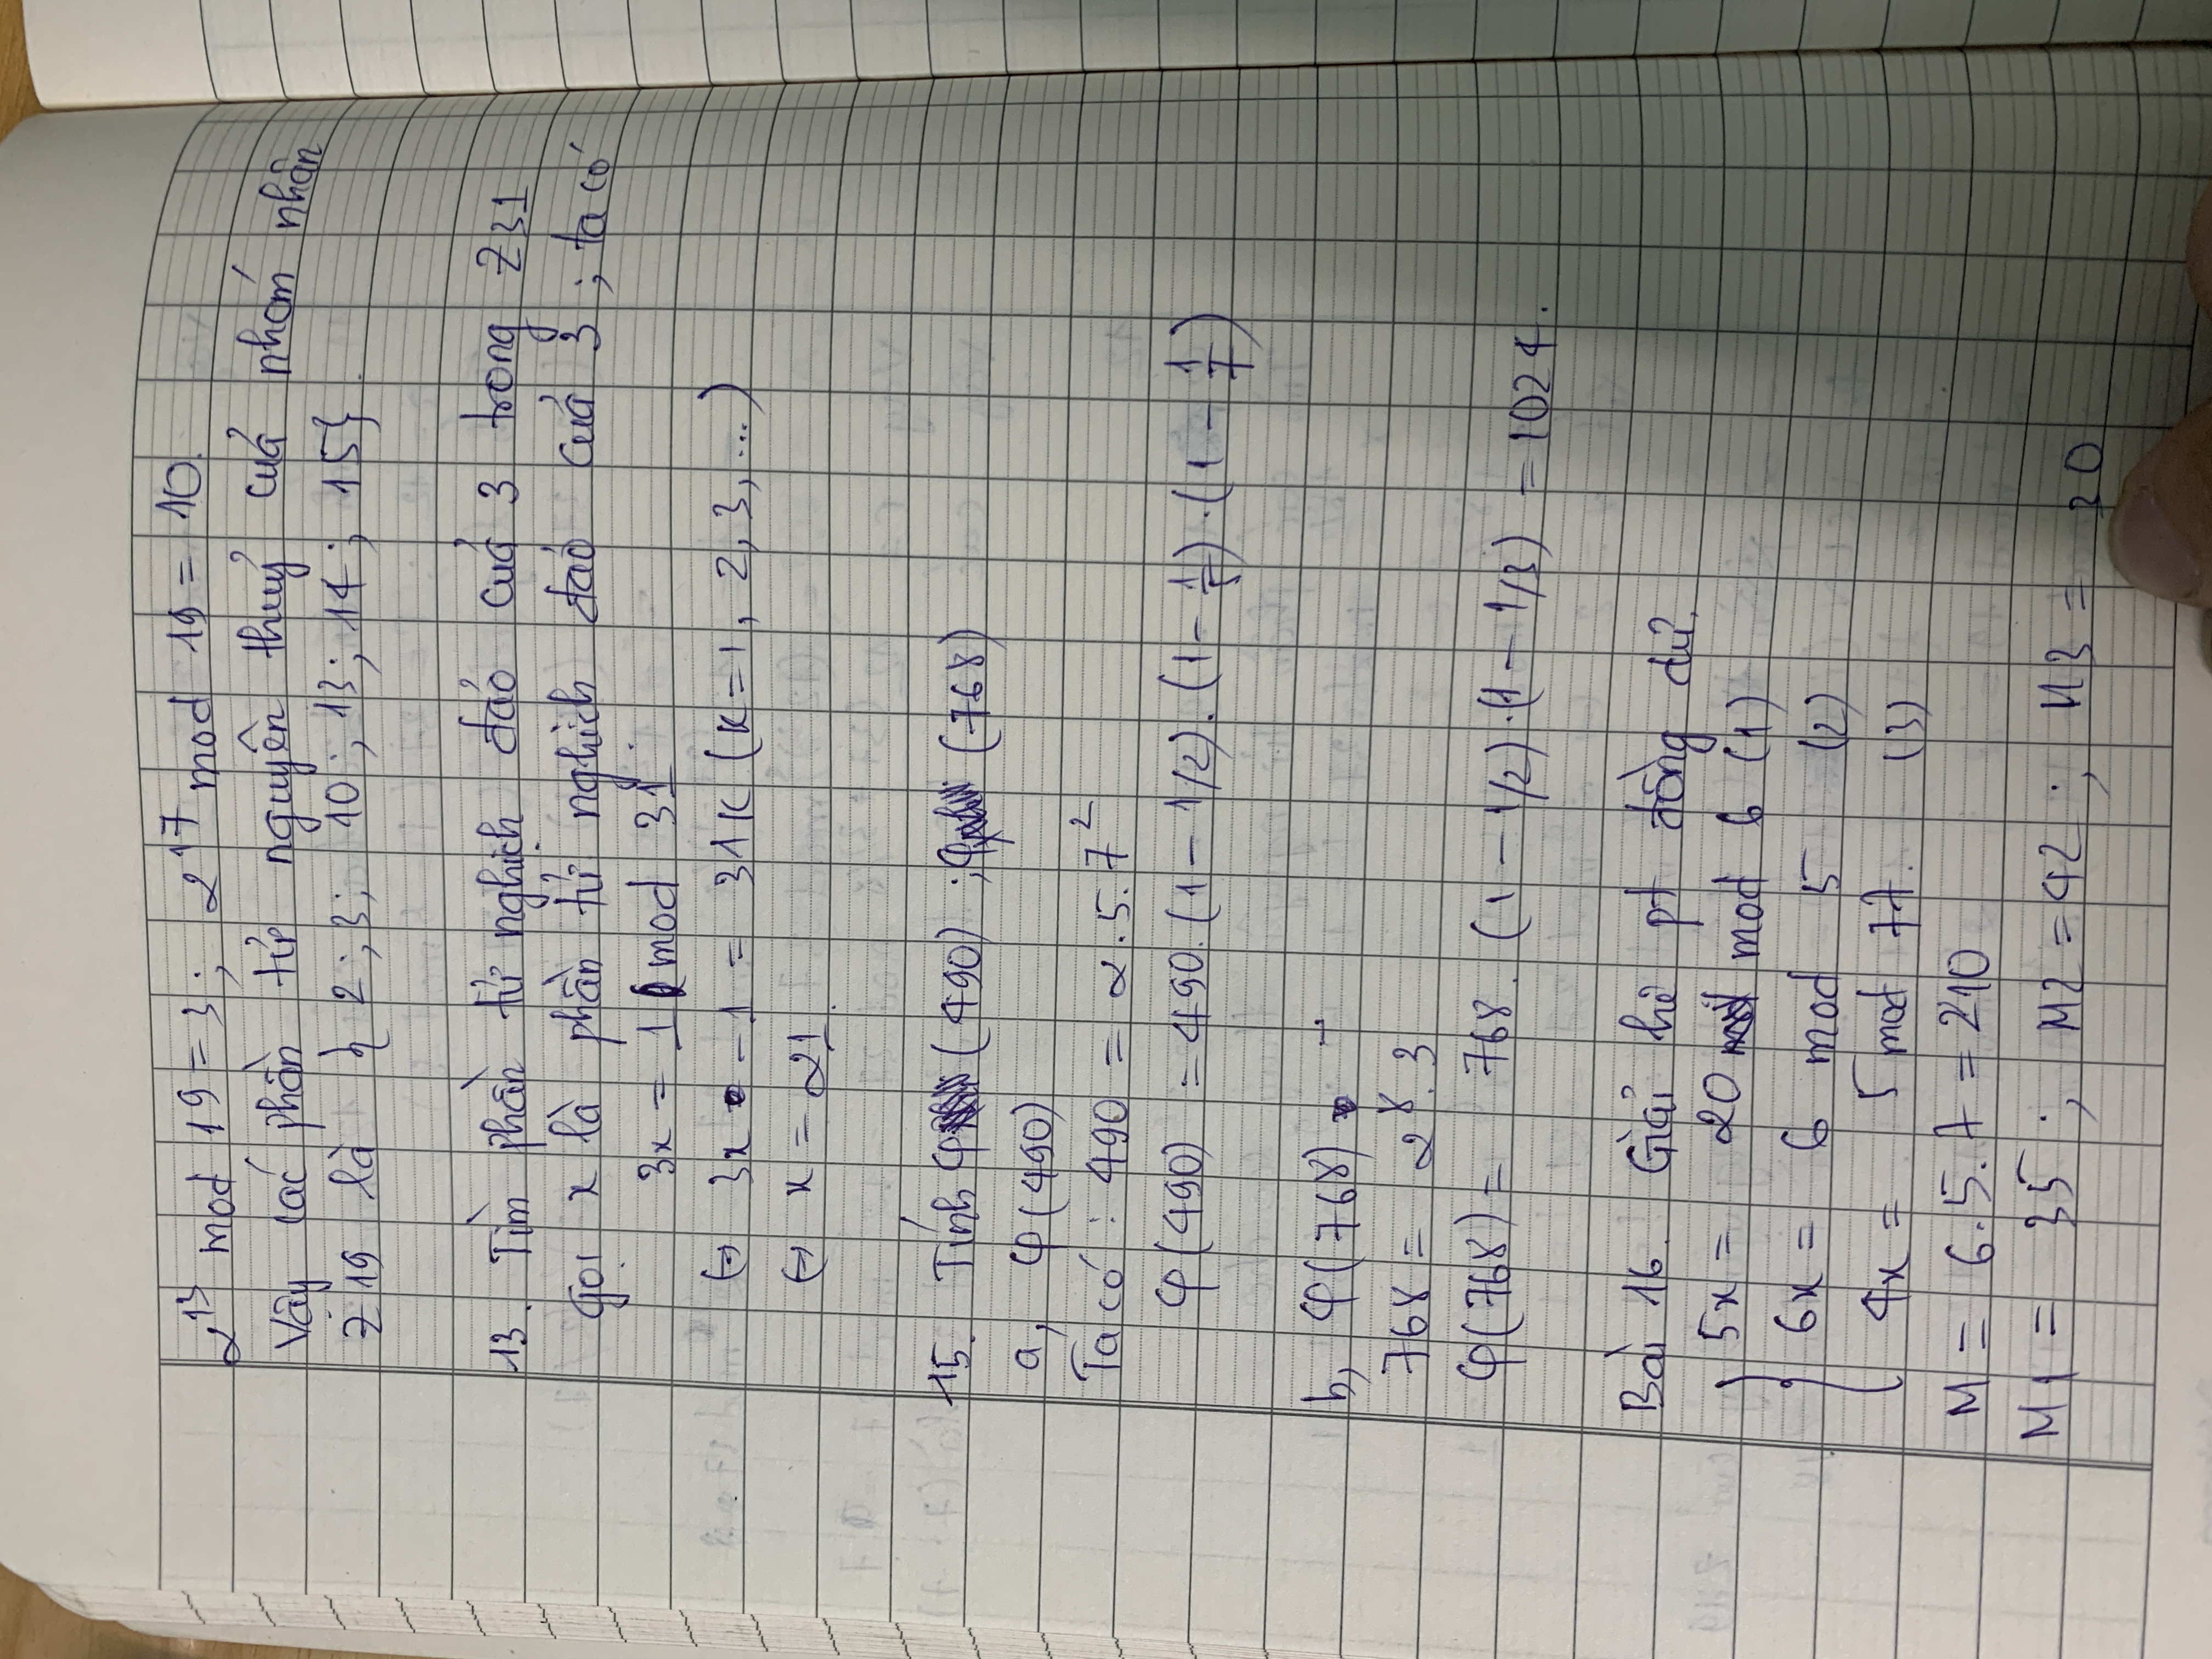 2^13 mod 19 = 3; 2^17 mod 19 = 10.
Vậy các phần tử nguyên thuỷ của nhóm nhân
Z19 là { 2; 3; 10; 13; 14; 15}.
13. Tìm phần tử nghịch đảo của 3 trong Z31
Gọi x là phần tử nghịch đảo của 3; ta có
3x = 1 mod 31
⇔ 3x - 1 = 31k (k=1, 2, 3, ...)
⇔ x = 21.
15. Tính φ (490) ; φ (768)
a, φ(490)
Ta có : 490 = 2.5.7^2
φ(490) = 490.(1 - 1/2).(1 - 1/5).(1 - 1/7)
b, φ(768)
768 = 2^8.3
φ(768) = 768.(1 - 1/2).(1 - 1/3) = 1024.
Bài 16. Giải hệ pt đồng dư.
5x = 20 mod 6 (1)
6x = 6 mod 5 (2)
4x = 5 mod 77. (3)
M = 6.5.7 = 210
M1 = 35 ; M2 = 42 ; M3 = 30